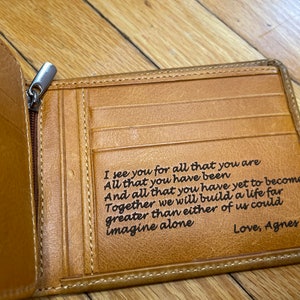 I see you for all that you are
All that you have been
And all that you have yet to become
Together we will build a life far
greater than either of us could
imagine alone Love, Agnes